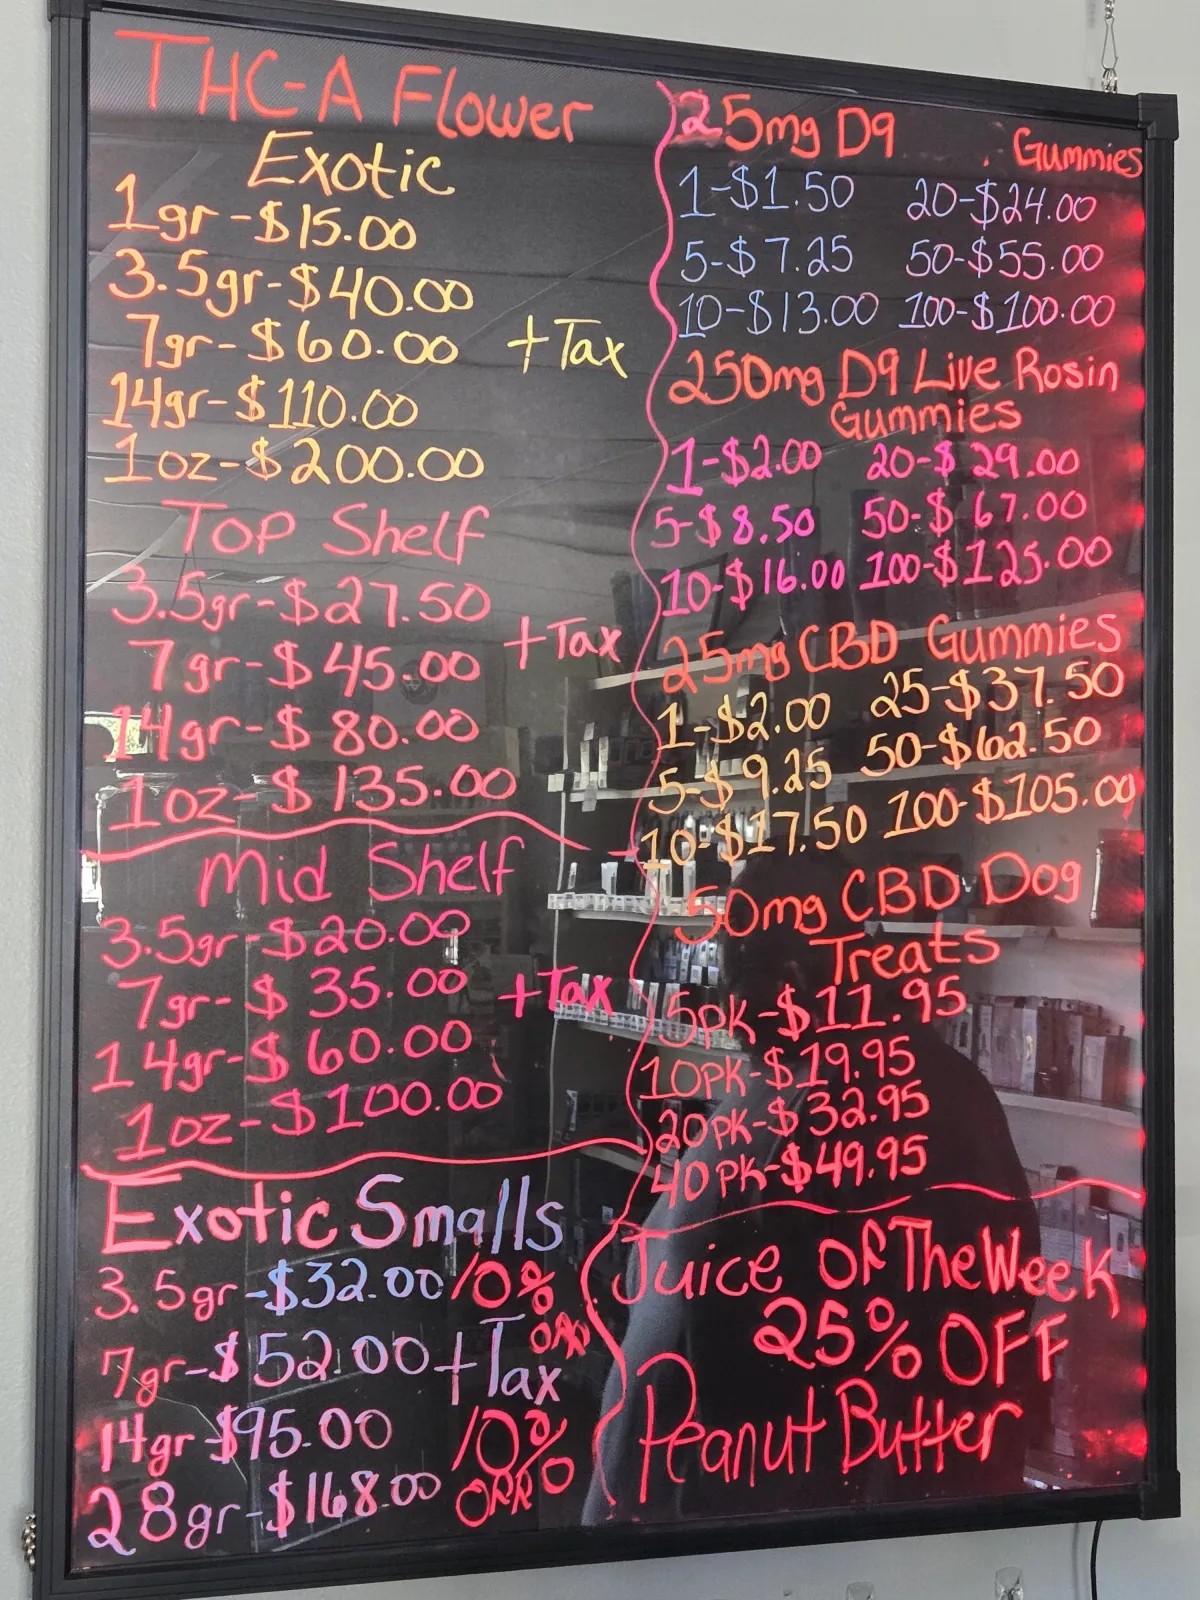 THC-A Flower
Exotic
1gr-$15.00
3.5gr-$40.00
7gr-$60.00 +Tax
14gr-$110.00
1oz-$200.00
Top Shelf
3.5gr-$27.50
7gr-$45.00 +Tax
14gr-$80.00
1oz-$135.00
Mid Shelf
3.5gr-$20.00
7gr-$35.00 +Tax
14gr-$60.00
1oz-$100.00
Exotic Smalls
3.5gr-$32.00 10%
OFF
7gr-$52.00 +Tax
14gr-$95.00 10%
28gr-$168.00 OFF
25mg D9 Gummies
1-$1.50 20-$24.00
5-$7.25 50-$55.00
10-$13.00 100-$100.00
250mg D9 Live Rosin
Gummies
1-$2.00 20-$29.00
5-$8.50 50-$67.00
10-$16.00 100-$125.00
25mg CBD Gummies
1-$2.00 25-$37.50
5-$9.25 50-$62.50
10-$17.50 100-$105.00
50mg CBD Dog
Treats
5pk-$11.95
10pk-$19.95
20pk-$32.95
40pk-$49.95
Juice Of The Week
25% OFF
Peanut Butter